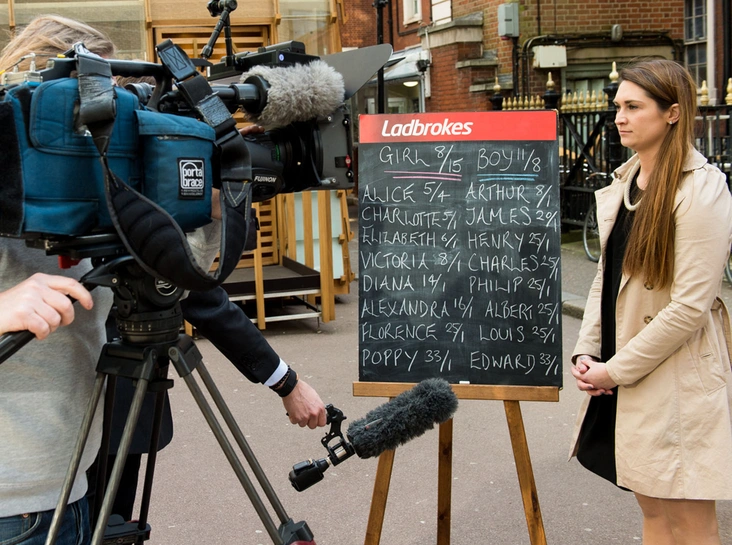 Ladbrokes
GIRL 8/15 BOY 11/8
ALICE 5/4 ARTHUR 8/1
CHARLOTTE 5/1 JAMES 20/1
ELIZABETH 6/1 HENRY 25/1
VICTORIA 8/1 CHARLES 25/1
DIANA 14/1 PHILIP 25/1
ALEXANDRA 16/1 ALBERT 25/1
FLORENCE 25/1 LOUIS 25/1
POPPY 33/1 EDWARD 33/1
porta
brace
FUJINON